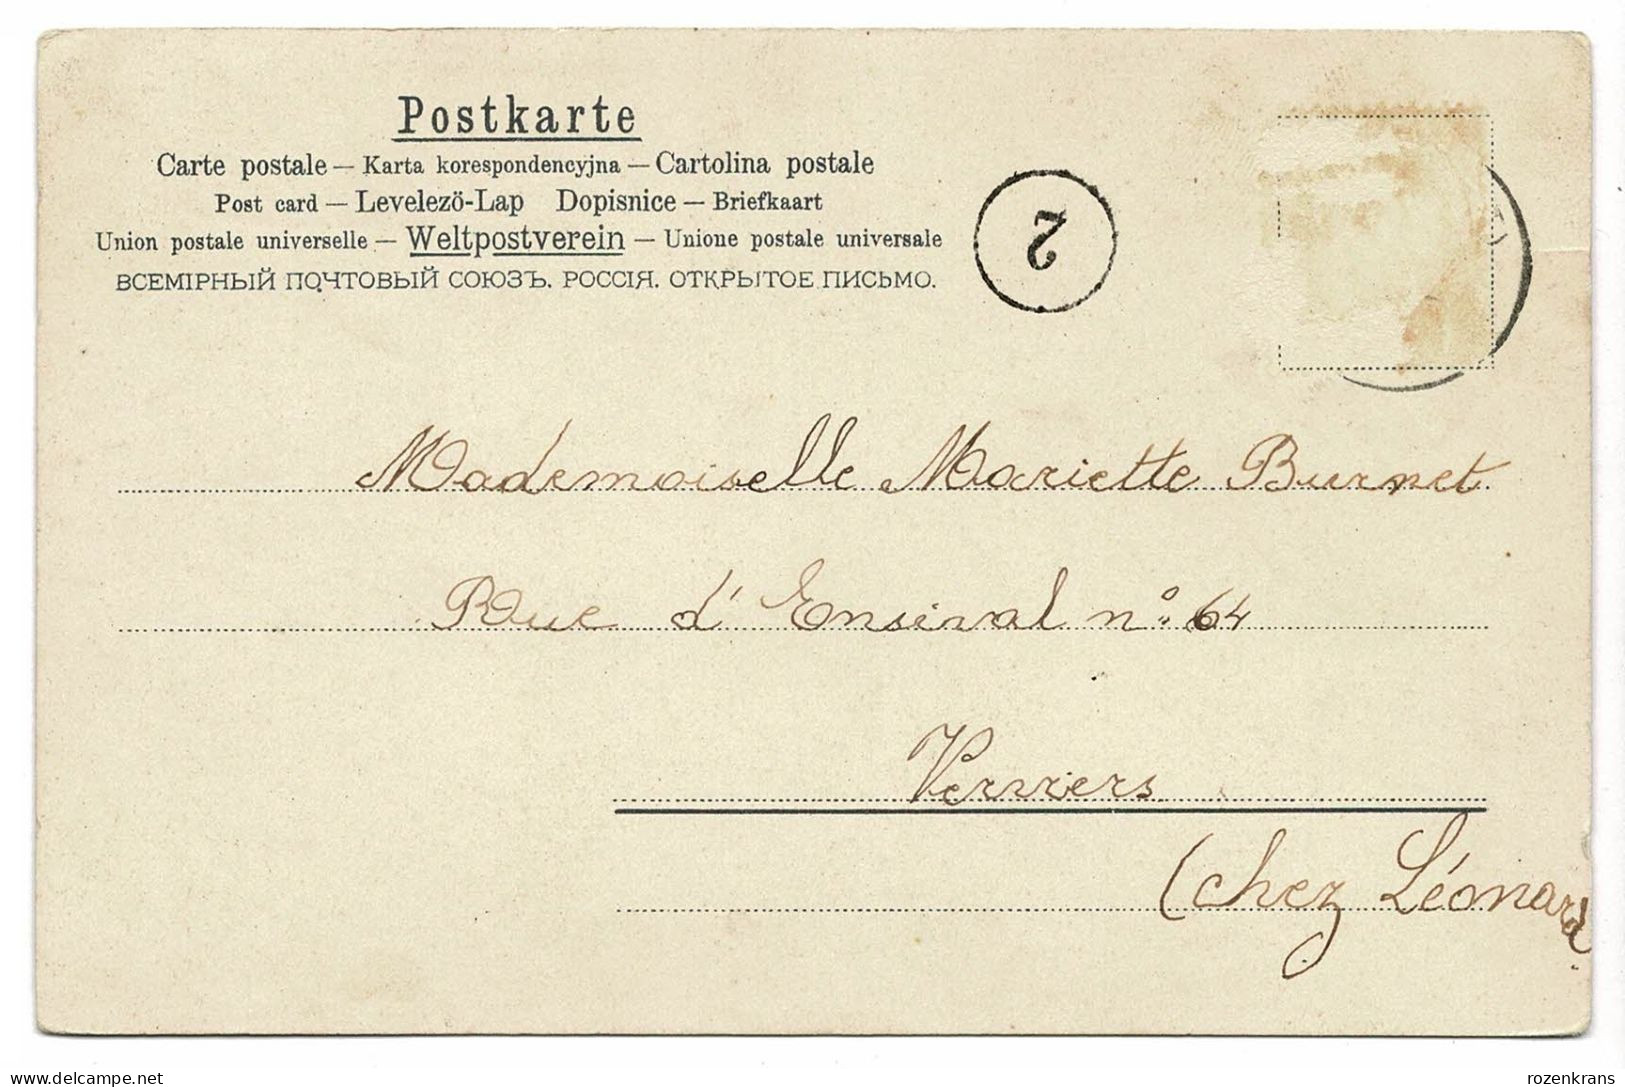 Postkarte
Carte postale — Karta korespondencyjna — Cartolina postale
Post card — Levelezö-Lap Dopisnice — Briefkaart
Union postale universelle — Weltpostverein — Unione postale universale
ВСЕМІРНЫЙ ПОЧТОВЫЙ СОЮЗЪ. РОССІЯ. ОТКРЫТОЕ ПИСЬМО.
2
Mademoiselle Mariette Burnet
Rue d'Ensival n° 64
Verviers
(chez Léonard
delcampe.net
rozenkrans